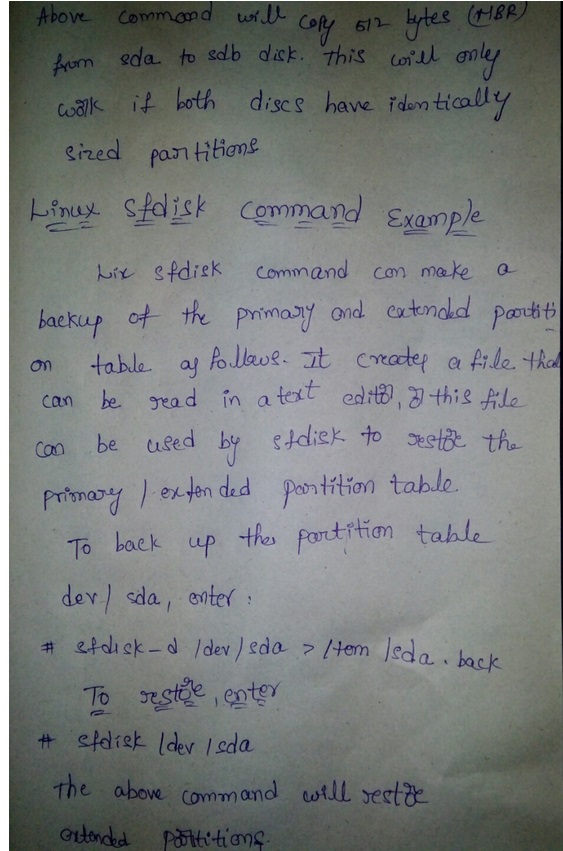 Above command will copy 512 bytes (MBR)
from sda to sdb disk. This will only
work if both discs have identically
sized partitions
Linux Sfdisk Command Example
Lix sfdisk command can make a
backup of the primary and extended partiti
on table as follows. It creates a file that
can be read in a text editor, this file
can be used by sfdisk to restore the
primary / extended partition table.
To back up the partition table
dev/ sda, enter :
# sfdisk-d /dev/sda > /tem /sda.back
To restore, enter
# sfdisk /dev/sda
The above command will restore
extended partitions.